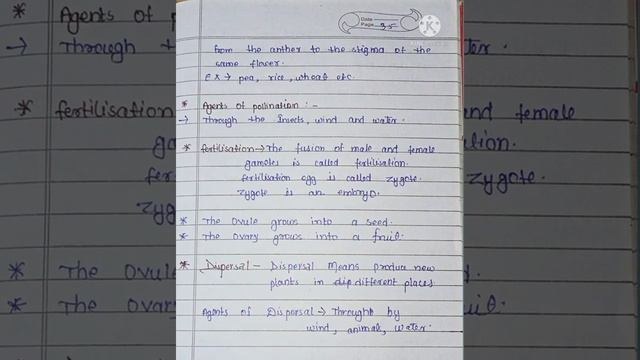 Date
Page 35
from the anther to the stigma of the
same flower.
EX → pea, rice, wheat etc.
* Agents of pollination :-
→ Through the Insects, wind and water.
* fertilisation → The fusion of male and female
gametes is called fertilisation.
fertilisation egg is called zygote.
zygote is an embryo.
* The ovule grows into a seed.
* The ovary grows into a fruit.
* Dispersal - Dispersal means produce new
plants in different places
Agents of Dispersal → Throught by
wind, animal, water.